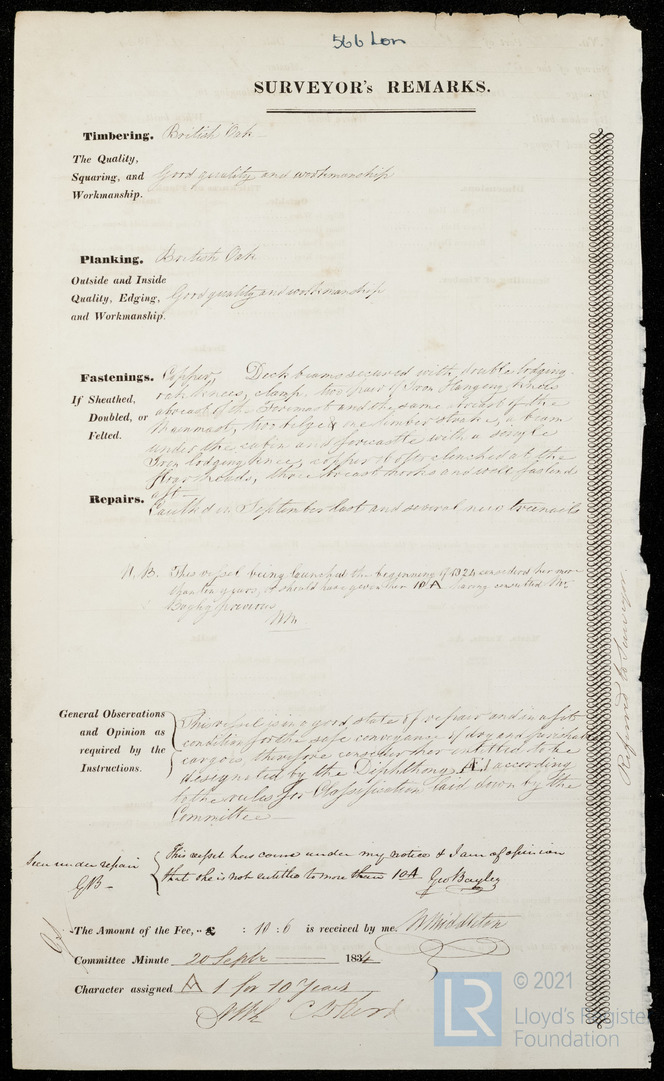 566 Lon
SURVEYOR's REMARKS.
Timbering. British Oak
The Quality,
Squaring, and Good quality and workmanship
Workmanship.
Planking. British Oak
Outside and Inside
Quality, Edging, Good quality and workmanship
and Workmanship.
Fastenings. Copper, Deck beams secured with double lodging
If Sheathed, oak knees, clamp, two pair of Iron Hanging knees
abreast of the Foremast and the same abreast of the
Doubled, or Mainmast, two bilge & one limber strake, a beam
Felted. under the cabin and forecastle with a single
Iron lodging knee, copper bolts clenched at the
floor heads, three breast hooks and well fastend
aft
Repairs. Caulkd in September last and several new treenails
N.B. This vessel being launched the beginning of 1824 considered her more
than ten years, should have given her 10 A having consulted Mr
Bayley previous
WM
General Observations This vessel is in a good state of repair and in a fit
and Opinion as condition for the safe conveyance of dry and perishable
required by the cargoes, therefore consider her entitled to be
Instructions. designated by the Diphthong Æ 1 according
to the rules for Classification laid down by the
Committee
Seen under repair This vessel has come under my notice & I am of opinion
GB that she is not entitled to more than 10A Geo Bayley
The Amount of the Fee, £ : 10 : 6 is received by me. W Middleton
Committee Minute 20 Septr 1834
Character assigned A 1 for 10 Years
Referred to Surveyor
© 2021
LR
Lloyd's Register
Foundation